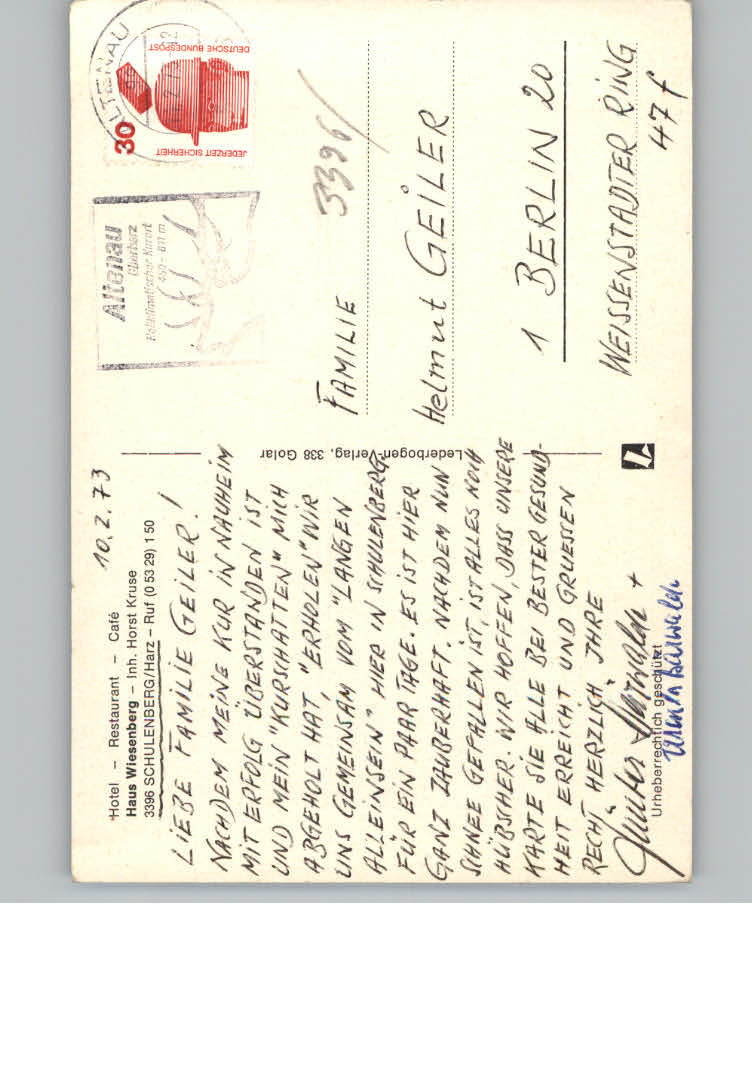 Hotel – Restaurant – Café
Haus Wiesenberg – Inh. Horst Kruse
3396 SCHULENBERG/Harz – Ruf (0 53 29) 1 50
10.2.73
LIEBE FAMILIE GEILER!
NACHDEM MEINE KUR IN NAUHEIM
MIT ERFOLG ÜBERSTANDEN IST
UND MEIN "KURSCHATTEN" MICH
ABGEHOLT HAT, "ERHOLEN" WIR
UNS GEMEINSAM VOM "LANGEN
ALLEINSEIN" HIER IN SCHULENBERG
FÜR EIN PAAR TAGE. ES IST HIER
GANZ ZAUBERHAFT. NACHDEM NUN
SCHNEE GEFALLEN IST, IST ALLES NOCH
HÜBSCHER. WIR HOFFEN, DASS UNSERE
KARTE SIE ALLE BEI BESTER GESUND-
HEIT ERREICHT UND GRUESSEN
RECHT HERZLICH IHRE
Günter +
Urheberrechtlich geschützt
Lederbogen-Verlag, 338 Golar
Altenau
Oberharz
Heilklimatischer Kurort
450 - 811 m
ALTENAU
30
DEUTSCHE BUNDESPOST
JEDERZEIT SICHERHEIT
3396/
FAMILIE
Helmut GEILER
1 BERLIN 20
WEISSENSTADTER RING
47 f